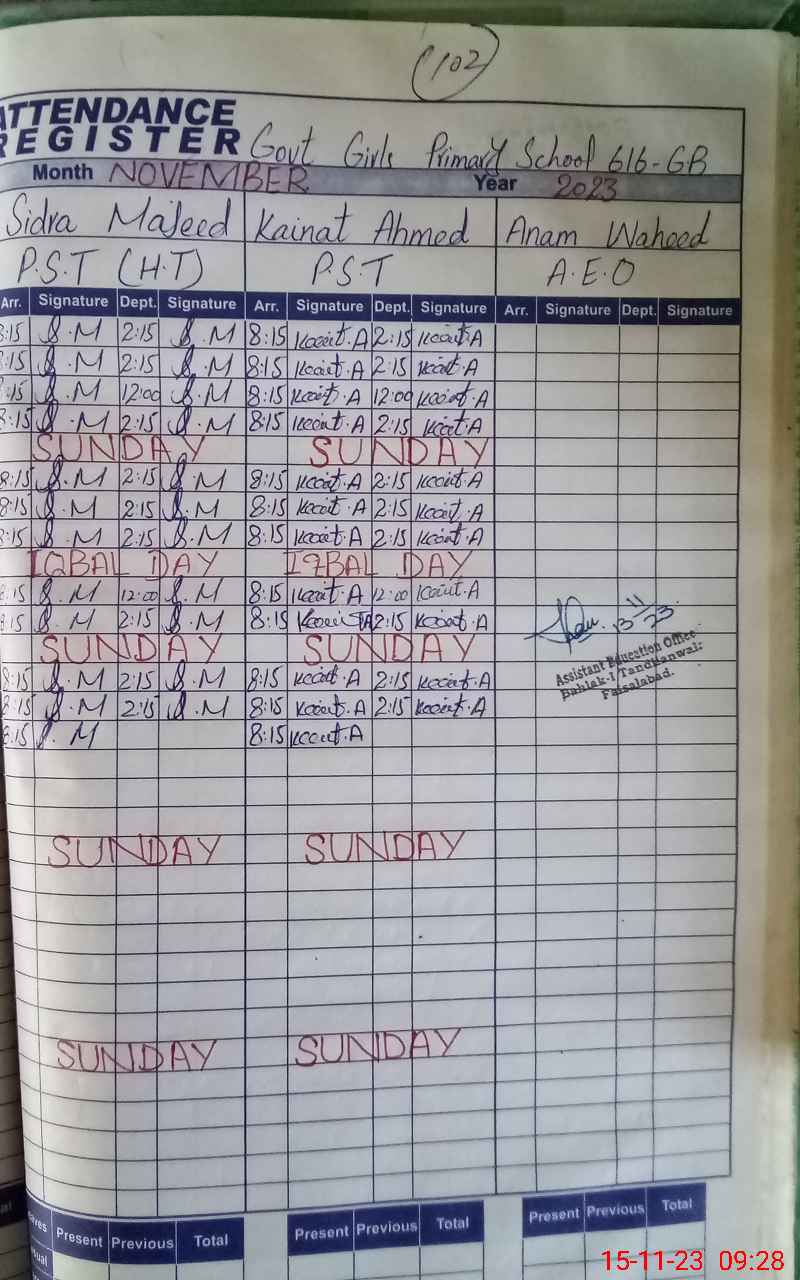 (102)
ATTENDANCE
REGISTER Govt Girls Primary School 616-GB
Month NOVEMBER Year 2023
Sidra Majeed Kainat Ahmed Anam Waheed
P.S.T (H.T) P.S.T A.E.O
Arr. Signature Dept. Signature Arr. Signature Dept. Signature Arr. Signature Dept. Signature
8:15 S.M 2:15 S.M 8:15 Kainat.A 2:15 Kainat.A
8:15 S.M 2:15 S.M 8:15 Kainat.A 2:15 Kainat.A
8:15 S.M 12:00 S.M 8:15 Kainat.A 12:00 Kainat.A
8:15 S.M 2:15 S.M 8:15 Kainat.A 2:15 Kainat.A
SUNDAY SUNDAY
8:15 S.M 2:15 S.M 8:15 Kainat.A 2:15 Kainat.A
8:15 S.M 2:15 S.M 8:15 Kainat.A 2:15 Kainat.A
8:15 S.M 2:15 S.M 8:15 Kainat.A 2:15 Kainat.A
IQBAL DAY IQBAL DAY
8:15 S.M 12:00 S.M 8:15 Kainat.A 12:00 Kainat.A
8:15 S.M 2:15 S.M 8:15 Kainat.A 2:15 Kainat.A
13-11-23
SUNDAY SUNDAY
Assistant Education Office
Bahlak-I Tandlianwal:
Faisalabad.
8:15 S.M 2:15 S.M 8:15 Kainat.A 2:15 Kainat.A
8:15 S.M 2:15 S.M 8:15 Kainat.A 2:15 Kainat.A
8:15 S.M 8:15 Kainat.A
SUNDAY SUNDAY
SUNDAY SUNDAY
Present Previous Total Present Previous Total Present Previous Total
15-11-23 09:28